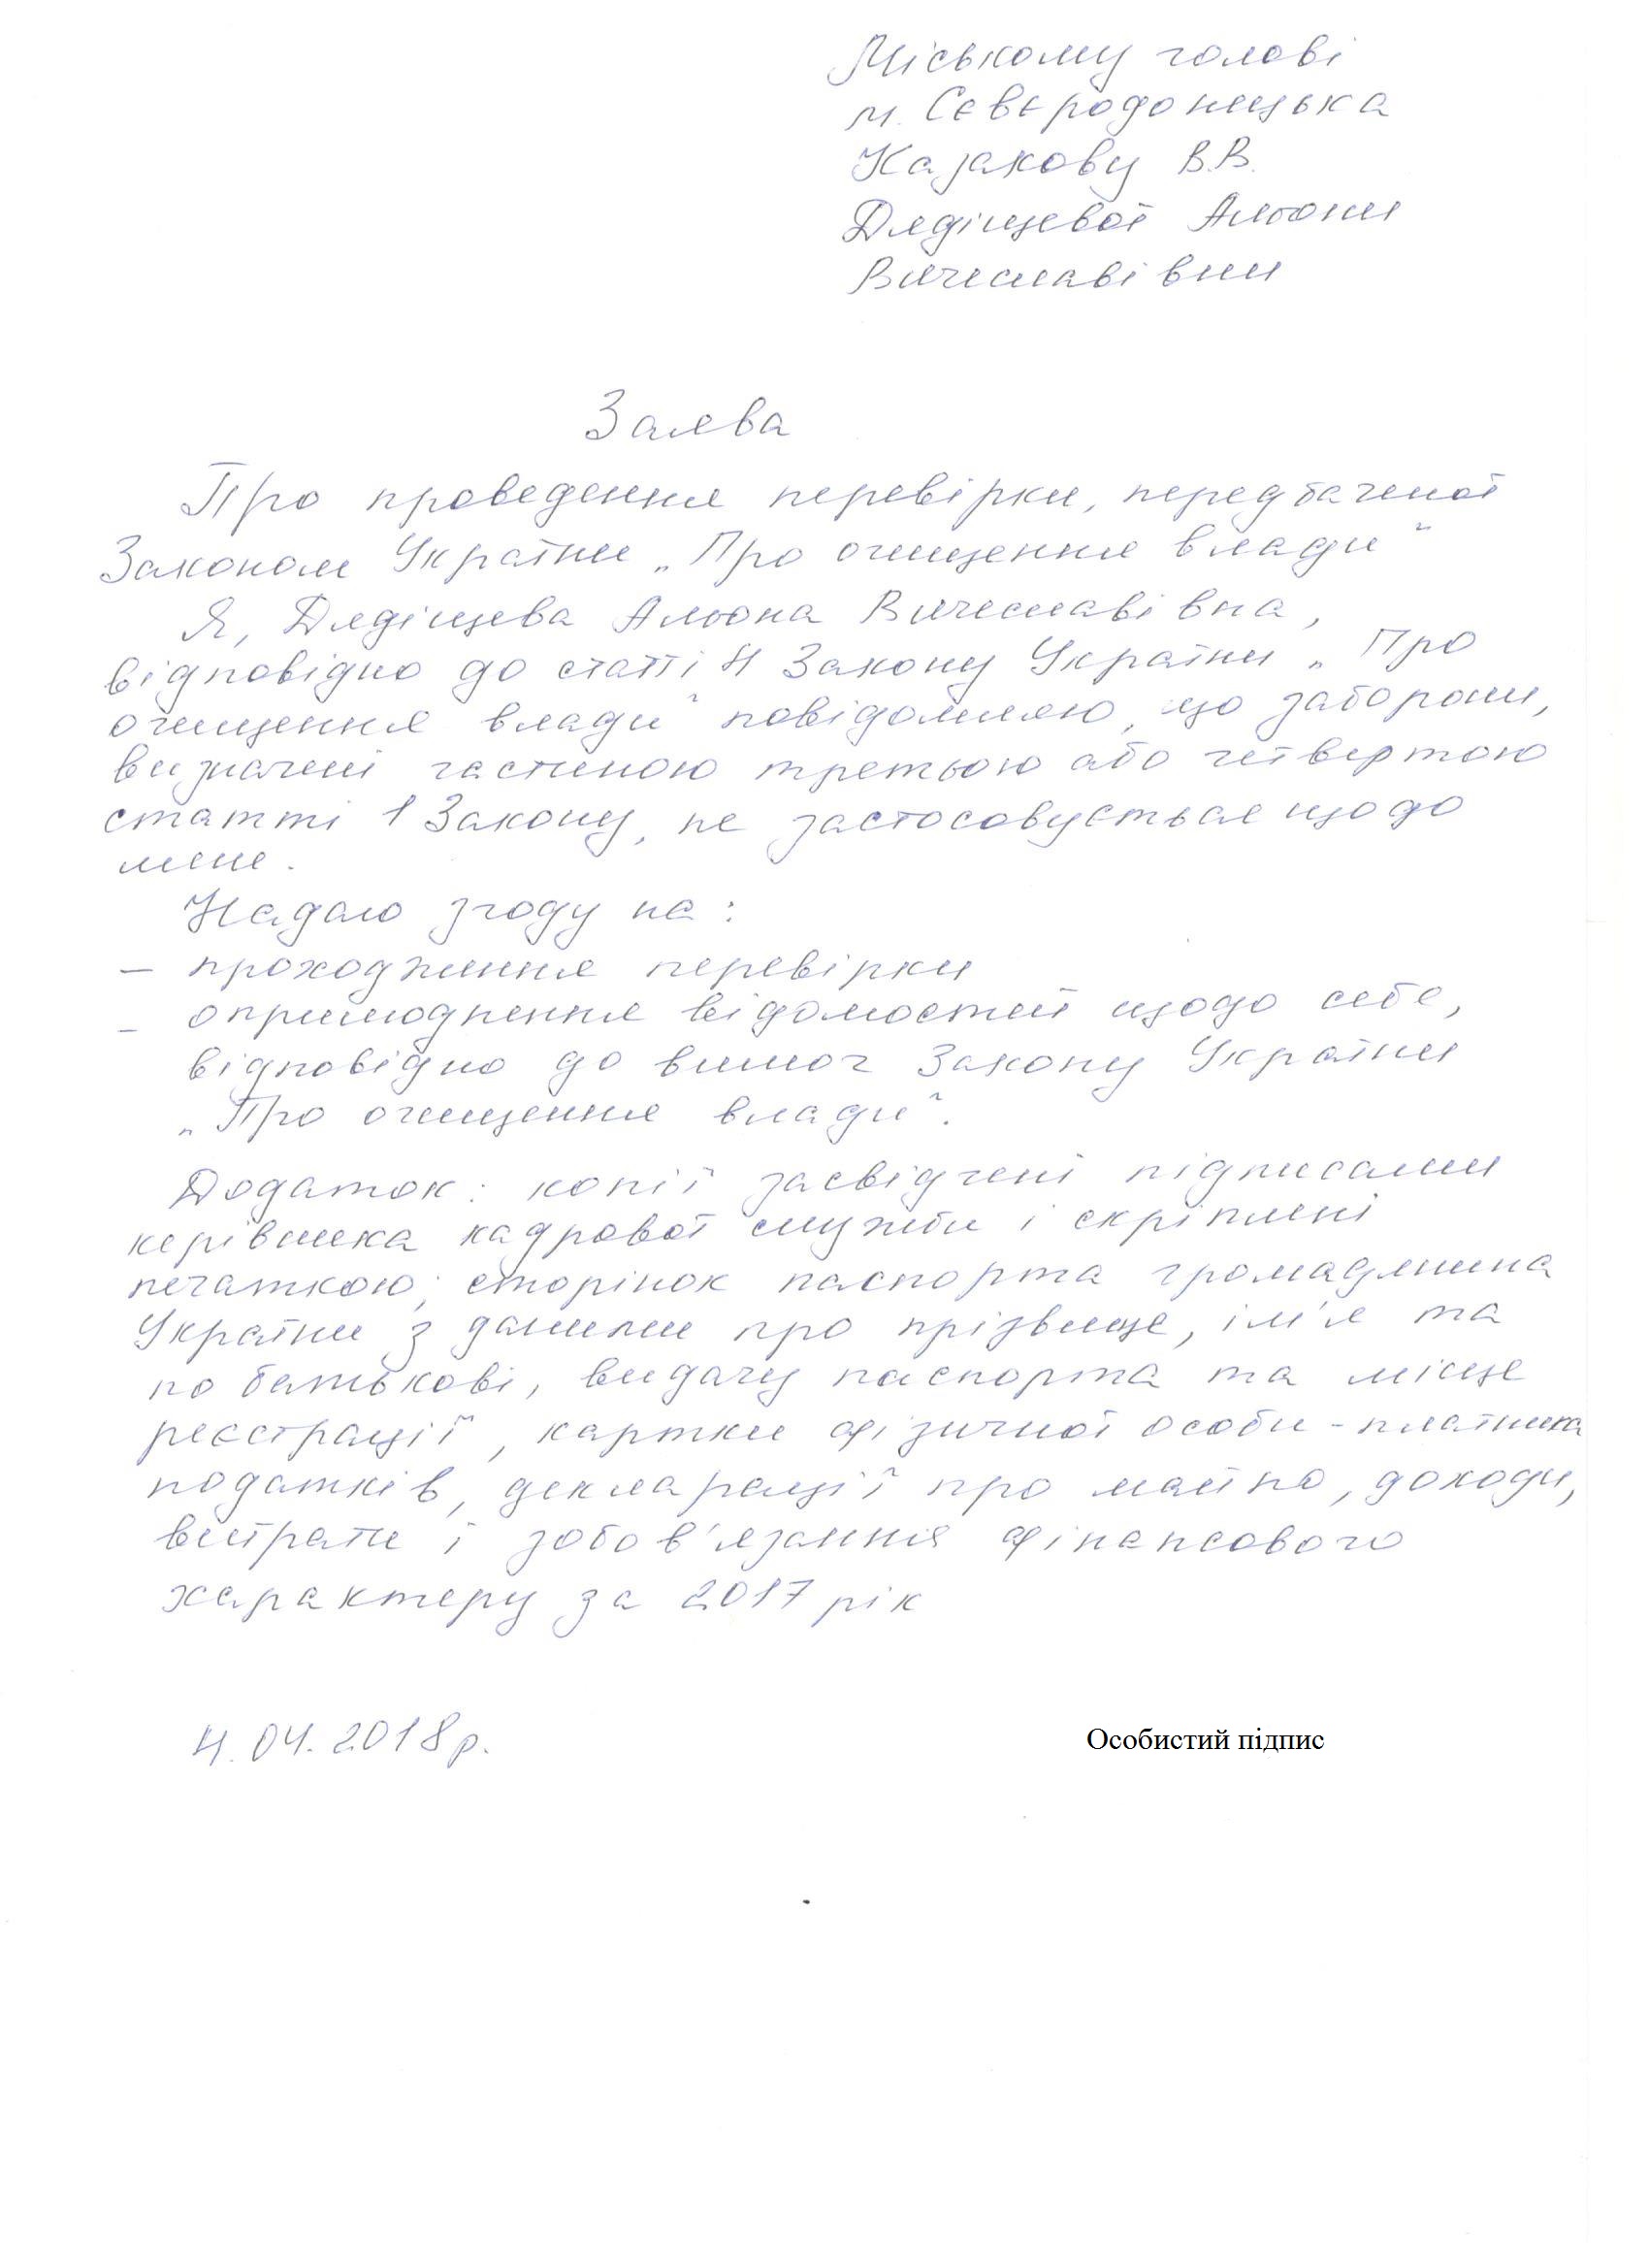 Міському голові
м. Сєвєродонецька
Казакову В.В.
Дядіщевої Альони
Вячеславівни
Заява
Про проведення перевірки, передбаченої
Законом України „Про очищення влади"
Я, Дядіщева Альона Вячеславівна,
відповідно до статті 4 Закону України „Про
очищення влади" повідомляю, що заборони,
визначені частиною третьою або четвертою
статті 1 Закону, не застосовується щодо
мене.
Надаю згоду на:
– проходження перевірки
– оприлюднення відомостей щодо себе,
відповідно до вимог Закону України
„Про очищення влади".
Додаток: копії засвідчені підписами
керівника кадрової служби і скріплені
печаткою; сторінок паспорта громадянина
України з даними про прізвище, ім'я та
по батькові, видачу паспорта та місце
реєстрації, картки фізичної особи-платника
податків, декларації про майно, доходи,
витрати і зобов'язання фінансового
характеру за 2017 рік
4.04.2018р.
Особистий підпис